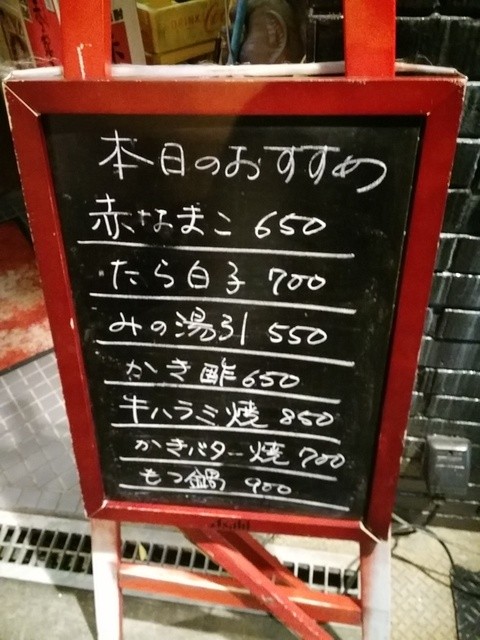 本日のおすすめ
赤なまこ 650
たら白子 700
みの湯引 550
かき酢 650
牛ハラミ焼 850
かきバター焼 700
もつ鍋 900
Asahi